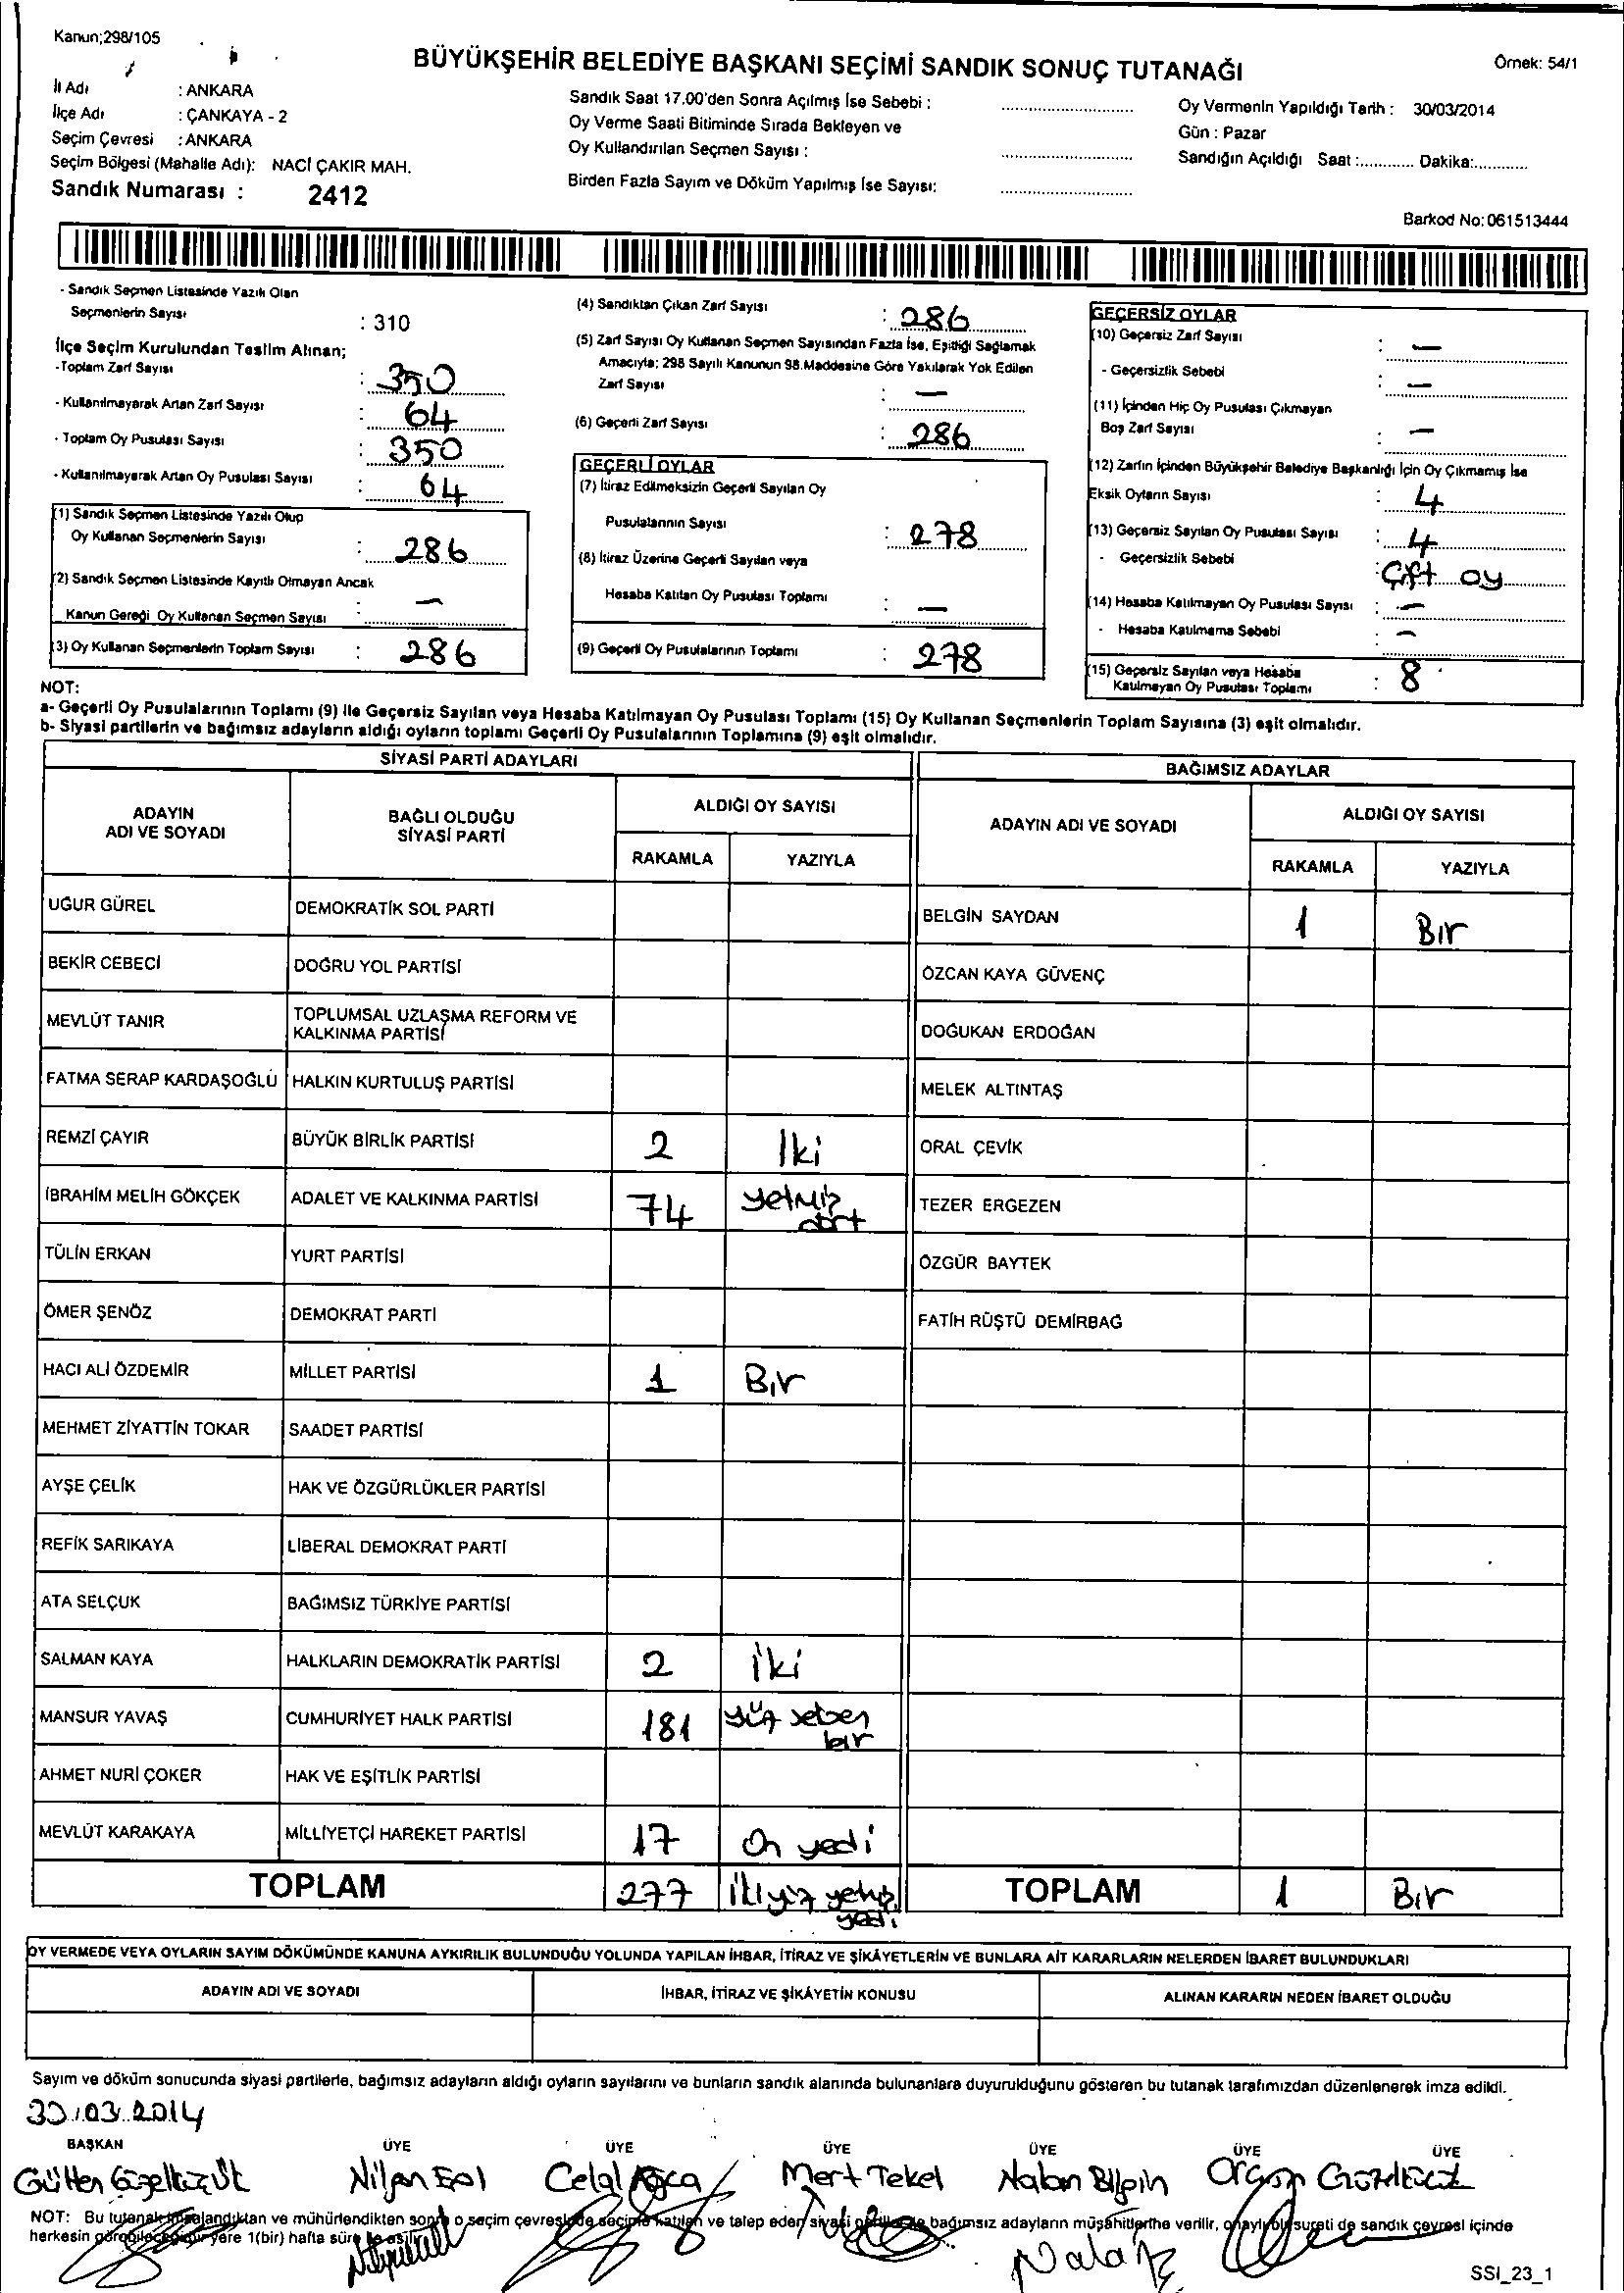 Kanun;298/105
BÜYÜKŞEHİR BELEDİYE BAŞKANI SEÇİMİ SANDIK SONUÇ TUTANAĞI
Örnek: 54/1
İl Adı : ANKARA
İlçe Adı : ÇANKAYA - 2
Seçim Çevresi : ANKARA
Seçim Bölgesi (Mahalle Adı): NACİ ÇAKIR MAH.
Sandık Numarası : 2412
Sandık Saat 17.00'den Sonra Açılmış İse Sebebi :
Oy Verme Saati Bitiminde Sırada Bekleyen ve
Oy Kullandırılan Seçmen Sayısı :
Birden Fazla Sayım ve Döküm Yapılmış İse Sayısı:
Oy Vermenin Yapıldığı Tarih : 30/03/2014
Gün : Pazar
Sandığın Açıldığı Saat :............ Dakika:............
Barkod No: 061513444
- Sandık Seçmen Listesinde Yazılı Olan
Seçmenlerin Sayısı : 310
İlçe Seçim Kurulundan Teslim Alınan;
- Toplam Zarf Sayısı : 350
- Kullanılmayarak Artan Zarf Sayısı : 64
- Toplam Oy Pusulası Sayısı : 350
- Kullanılmayarak Artan Oy Pusulası Sayısı : 64
(1) Sandık Seçmen Listesinde Yazılı Olup
Oy Kullanan Seçmenlerin Sayısı : 286
(2) Sandık Seçmen Listesinde Kayıtlı Olmayan Ancak
Kanun Gereği Oy Kullanan Seçmen Sayısı : —
(3) Oy Kullanan Seçmenlerin Toplam Sayısı : 286
(4) Sandıktan Çıkan Zarf Sayısı : 286
(5) Zarf Sayısı Oy Kullanan Seçmen Sayısından Fazla İse, Eşitliği Sağlamak
Amacıyla; 298 Sayılı Kanunun 98.Maddesine Göre Yakılarak Yok Edilen
Zarf Sayısı : —
(6) Geçerli Zarf Sayısı : 286
GEÇERLİ OYLAR
(7) İtiraz Edilmeksizin Geçerli Sayılan Oy
Pusulalarının Sayısı : 278
(8) İtiraz Üzerine Geçerli Sayılan veya
Hesaba Katılan Oy Pusulası Toplamı : —
(9) Geçerli Oy Pusulalarının Toplamı : 278
GEÇERSİZ OYLAR
(10) Geçersiz Zarf Sayısı : —
- Geçersizlik Sebebi : —
(11) İçinden Hiç Oy Pusulası Çıkmayan
Boş Zarf Sayısı : —
(12) Zarfın İçinden Büyükşehir Belediye Başkanlığı İçin Oy Çıkmamış İse
Eksik Oyların Sayısı : 4
(13) Geçersiz Sayılan Oy Pusulası Sayısı : 4
- Geçersizlik Sebebi : Çift oy
(14) Hesaba Katılmayan Oy Pusulası Sayısı : —
- Hesaba Katılmama Sebebi : —
(15) Geçersiz Sayılan veya Hesaba
Katılmayan Oy Pusulası Toplamı : 8
NOT:
a- Geçerli Oy Pusulalarının Toplamı (9) ile Geçersiz Sayılan veya Hesaba Katılmayan Oy Pusulası Toplamı (15) Oy Kullanan Seçmenlerin Toplam Sayısına (3) eşit olmalıdır.
b- Siyasi partilerin ve bağımsız adayların aldığı oyların toplamı Geçerli Oy Pusulalarının Toplamına (9) eşit olmalıdır.
SİYASİ PARTİ ADAYLARI
ADAYIN ADI VE SOYADI BAĞLI OLDUĞU SİYASİ PARTİ ALDIĞI OY SAYISI
RAKAMLA YAZIYLA
UĞUR GÜREL DEMOKRATİK SOL PARTİ
BEKİR CEBECİ DOĞRU YOL PARTİSİ
MEVLÜT TANIR TOPLUMSAL UZLAŞMA REFORM VE
KALKINMA PARTİSİ
FATMA SERAP KARDAŞOĞLU HALKIN KURTULUŞ PARTİSİ
REMZİ ÇAYIR BÜYÜK BİRLİK PARTİSİ 2 İki
İBRAHİM MELİH GÖKÇEK ADALET VE KALKINMA PARTİSİ 74 yetmiş dört
TÜLİN ERKAN YURT PARTİSİ
ÖMER ŞENÖZ DEMOKRAT PARTİ
HACI ALİ ÖZDEMİR MİLLET PARTİSİ 1 Bir
MEHMET ZİYATTİN TOKAR SAADET PARTİSİ
AYŞE ÇELİK HAK VE ÖZGÜRLÜKLER PARTİSİ
REFİK SARIKAYA LİBERAL DEMOKRAT PARTİ
ATA SELÇUK BAĞIMSIZ TÜRKİYE PARTİSİ
SALMAN KAYA HALKLARIN DEMOKRATİK PARTİSİ 2 İki
MANSUR YAVAŞ CUMHURİYET HALK PARTİSİ 181 yüz seksen bir
AHMET NURİ ÇOKER HAK VE EŞİTLİK PARTİSİ
MEVLÜT KARAKAYA MİLLİYETÇİ HAREKET PARTİSİ 17 On yedi
TOPLAM 277 İki yüz yetmiş yedi
BAĞIMSIZ ADAYLAR
ADAYIN ADI VE SOYADI ALDIĞI OY SAYISI
RAKAMLA YAZIYLA
BELGİN SAYDAN 1 Bir
ÖZCAN KAYA GÜVENÇ
DOĞUKAN ERDOĞAN
MELEK ALTINTAŞ
ORAL ÇEVİK
TEZER ERGEZEN
ÖZGÜR BAYTEK
FATİH RÜŞTÜ DEMİRBAĞ
TOPLAM 1 Bir
OY VERMEDE VEYA OYLARIN SAYIM DÖKÜMÜNDE KANUNA AYKIRILIK BULUNDUĞU YOLUNDA YAPILAN İHBAR, İTİRAZ VE ŞİKÂYETLERİN VE BUNLARA AİT KARARLARIN NELERDEN İBARET BULUNDUKLARI
ADAYIN ADI VE SOYADI İHBAR, İTİRAZ VE ŞİKÂYETİN KONUSU ALINAN KARARIN NEDEN İBARET OLDUĞU
Sayım ve döküm sonucunda siyasi partilerle, bağımsız adayların aldığı oyların sayılarını ve bunların sandık alanında bulunanlara duyurulduğunu gösteren bu tutanak tarafımızdan düzenlenerek imza edildi.
30.03.2014
BAŞKAN ÜYE ÜYE ÜYE ÜYE ÜYE ÜYE
Gülten Nilgen Celal Mert Tekel Nalan Bilgin
NOT: Bu tutanak imzalandıktan ve mühürlendikten sonra o seçim çevresinde seçime katılan ve talep eden siyasi partiler ile bağımsız adayların müşahitlerine verilir, onaylı bir sureti de sandık çevresi içinde
herkesin görebileceği bir yere 1(bir) hafta süre ile asılır.
SSI_23_1